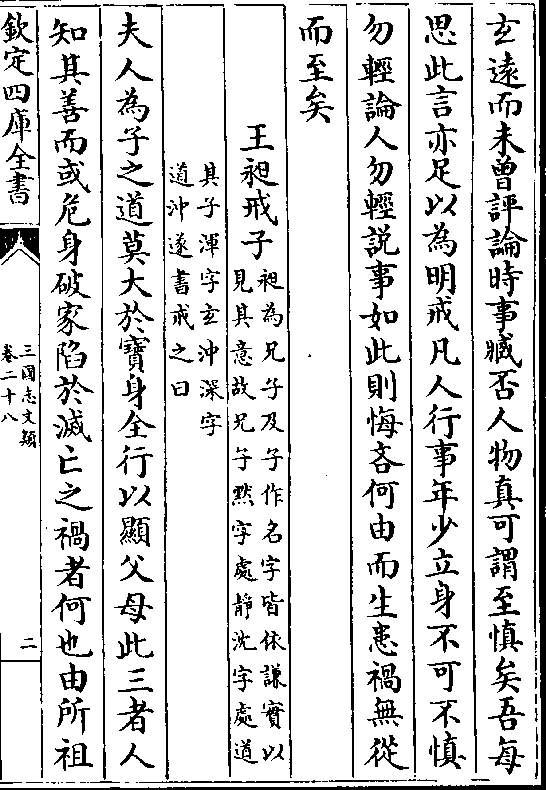 玄遠而未曾評論時事臧否人物真可謂至慎矣吾每
思此言亦足以為明戒凡人行事年少立身不可不慎
勿輕論人勿輕説事如此則悔吝何由而生患禍無從
而至矣
王昶戒子
昶為兄子及子作名字皆依謙實以
見其意故兄子黙字處靜沈字處道
其子渾字玄沖深字
道沖遂書戒之曰
夫人為子之道莫大於寶身全行以顯父母此三者人
知其善而或危身破家陷於滅亡之禍者何也由所祖
欽定四庫全書
三國志文類
卷二十八
二